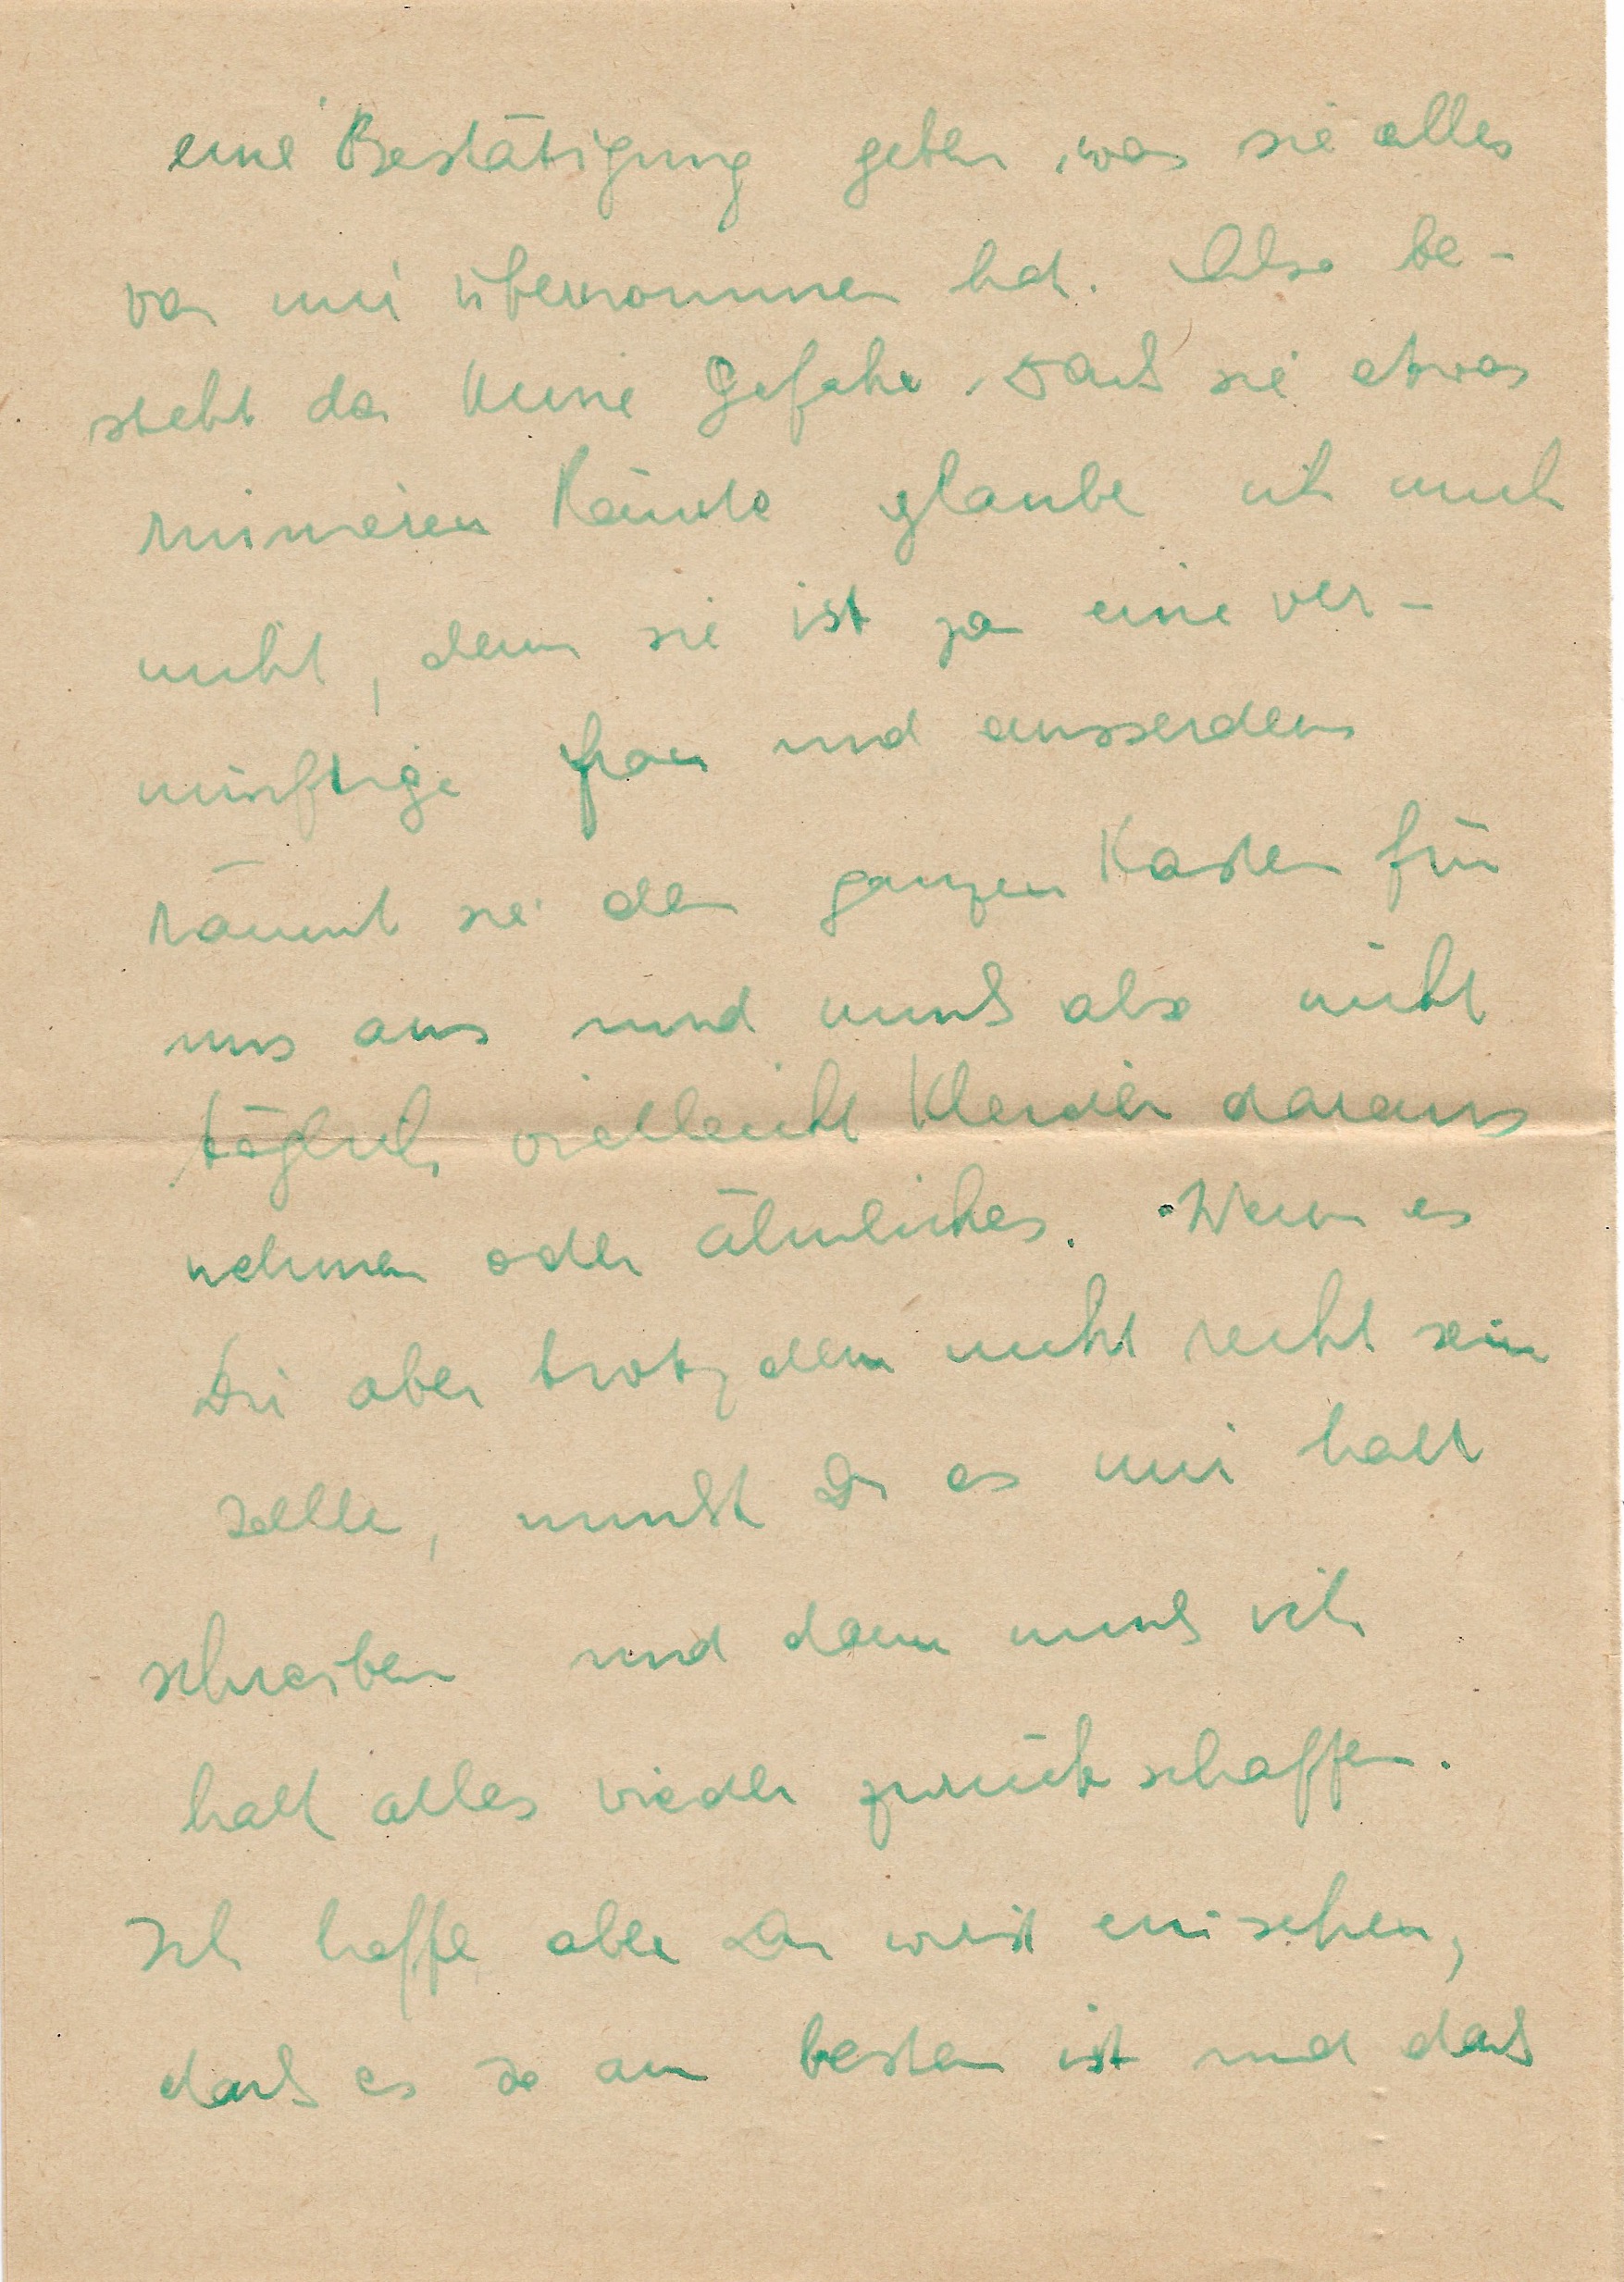 eine Bestätigung geben, was sie alles
von mir übernommen hat. Also be-
steht da keine Gefahr. Daß sie etwas
ruinieren könnte glaube ich auch
nicht, denn sie ist ja eine ver-
nünftige Frau und ausserdem
räumt sie den ganzen Kasten für
uns aus und muß also nicht
täglich vielleicht Kleider daraus
nehmen oder ähnliches. Wenn es
Dir aber trotzdem nicht recht sein
sollte, mußt Du es mir halt
schreiben und dann muß ich
halt alles wieder zurück schaffen.
Ich hoffe aber Du wirst einsehen,
daß es so am besten ist und daß